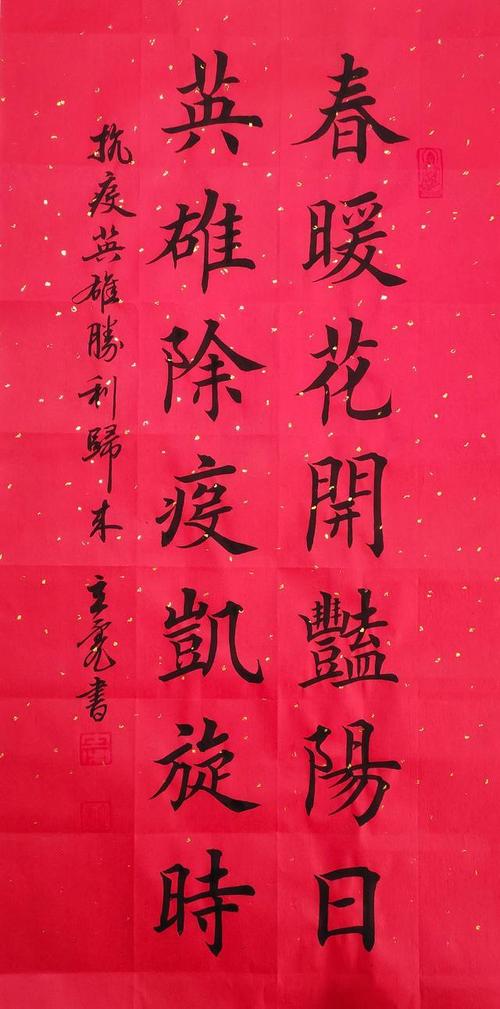 春暖花開豔陽日
英雄除疫凱旋時
抗疫英雄勝利歸来
立亮書